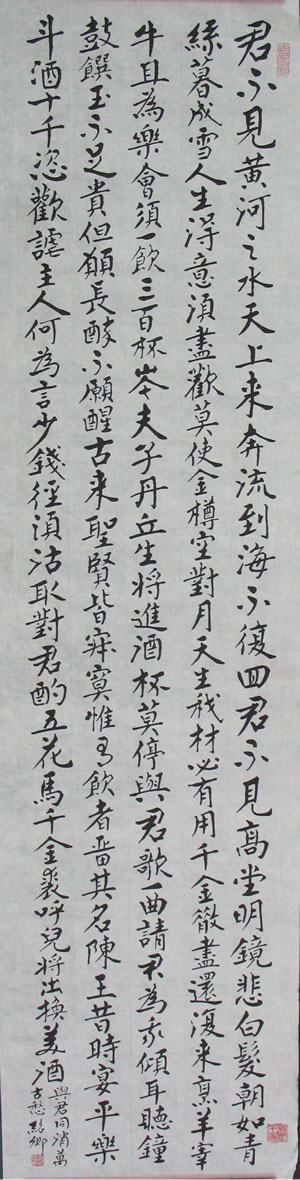 君不見黃河之水天上来奔流到海不復回君不見高堂明鏡悲白髮朝如青
絲暮成雪人生得意須盡歡莫使金樽空對月天生我材必有用千金散盡還復来烹羊宰
牛且為樂會須一飲三百杯岑夫子丹丘生将進酒杯莫停與君歌一曲請君為我傾耳聽鐘
鼓饌玉不足貴但願長酔不願醒古来聖賢皆寂寞惟有飲者留其名陳王昔時宴平樂
斗酒十千恣歡謔主人何為言少錢徑須沽取對君酌五花馬千金裘呼兒将出換美酒
與君同消萬
古愁